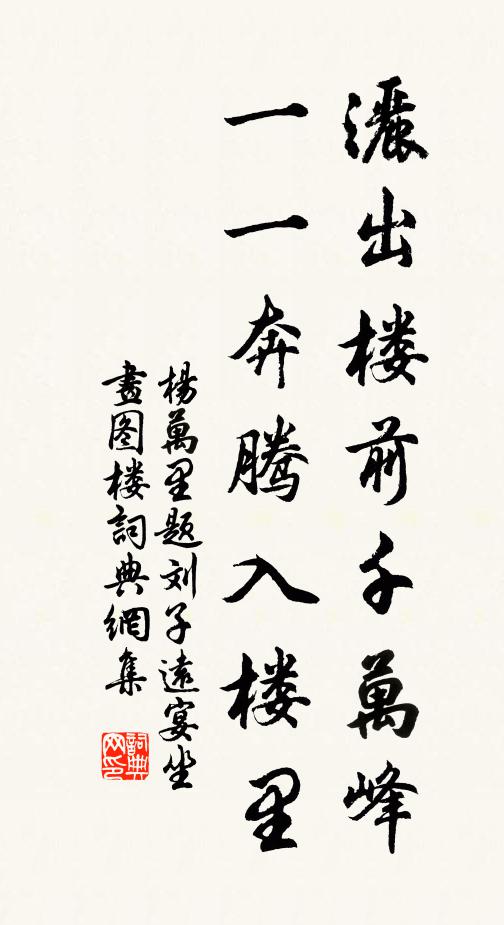 灑出楼前千萬峰
一一奔腾入楼里
楊萬里题刘子遠宴坐
畫图楼詞典網集
詞典网印